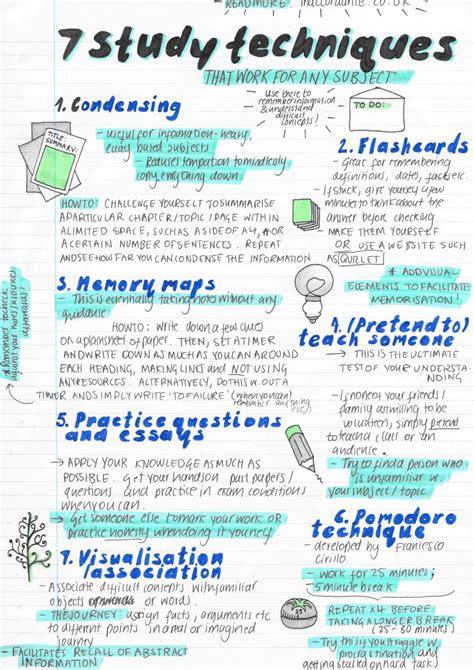 READ MORE:
7 study techniques
THAT WORK FOR ANY SUBJECT
use these to
remember information
& understand
difficult
concepts!
TO DO:
1. Condensing
TITLE:
SUMMARY:
- useful for information-heavy,
essay based subjects
- Reduces temptation to mindlessly
copy everything down
HOW TO: CHALLENGE YOURSELF TO SUMMARISE
A PARTICULAR CHAPTER / TOPIC / PAGE WITHIN
A LIMITED SPACE, SUCH AS A SIDE OF A4, OR
A CERTAIN NUMBER OF SENTENCES. REPEAT
AND SEE HOW FAR YOU CAN CONDENSE THE INFORMATION
2. Flashcards
- Great for remembering
definitions, dates, facts etc.
- If stuck, give yourself a few
minutes to think about the
answer before checking
- MAKE THEM YOURSELF
OR USE A WEBSITE SUCH
AS QUIZLET
* ADD VISUAL
ELEMENTS TO FACILITATE
MEMORISATION!
3. Memory maps
- This is essentially taking notes without any
guidance
HOW TO: Write down a few clues
on a plain sheet of paper. Then, set a timer
and write down as much as you can around
each heading, making lines and NOT using
any resources. Alternatively, do this w.out a
timer and simply write 'to failure' (when you can't
remember anything
else)
* Remember to check
against your notes / resources
afterwards!
4. (Pretend to)
teach someone
→ THIS IS THE ULTIMATE
TEST OF YOUR UNDERSTA-
NDING
- If none of your friends /
family are willing to be
volunteers, simply pretend
to teach a class or an
audience.
- Try to find a person who
is unfamiliar w. your
subject / topic
5. Practice questions
and essays
→ APPLY YOUR KNOWLEDGE AS MUCH AS
POSSIBLE. Get your hands on past papers /
questions and practice in exam conditions
when you can.
→ Get someone else to mark your work OR
practice honesty when doing it yourself
6. Pomodoro
technique
- developed by Francesco
Cirillo
- Work for 25 minutes;
5 minute break
REPEAT X4 BEFORE
TAKING A LONGER BREAK
(25 - 30 minutes)
- Try this if you struggle w.
procrastination and
getting bored of one task
7. Visualisation
/association
- Associate difficult concepts with familiar
objects or words.
- THE JOURNEY: assign facts, arguments etc
to different points in a real or imagined
journey
- FACILITATES RECALL OF ABSTRACT
INFORMATION